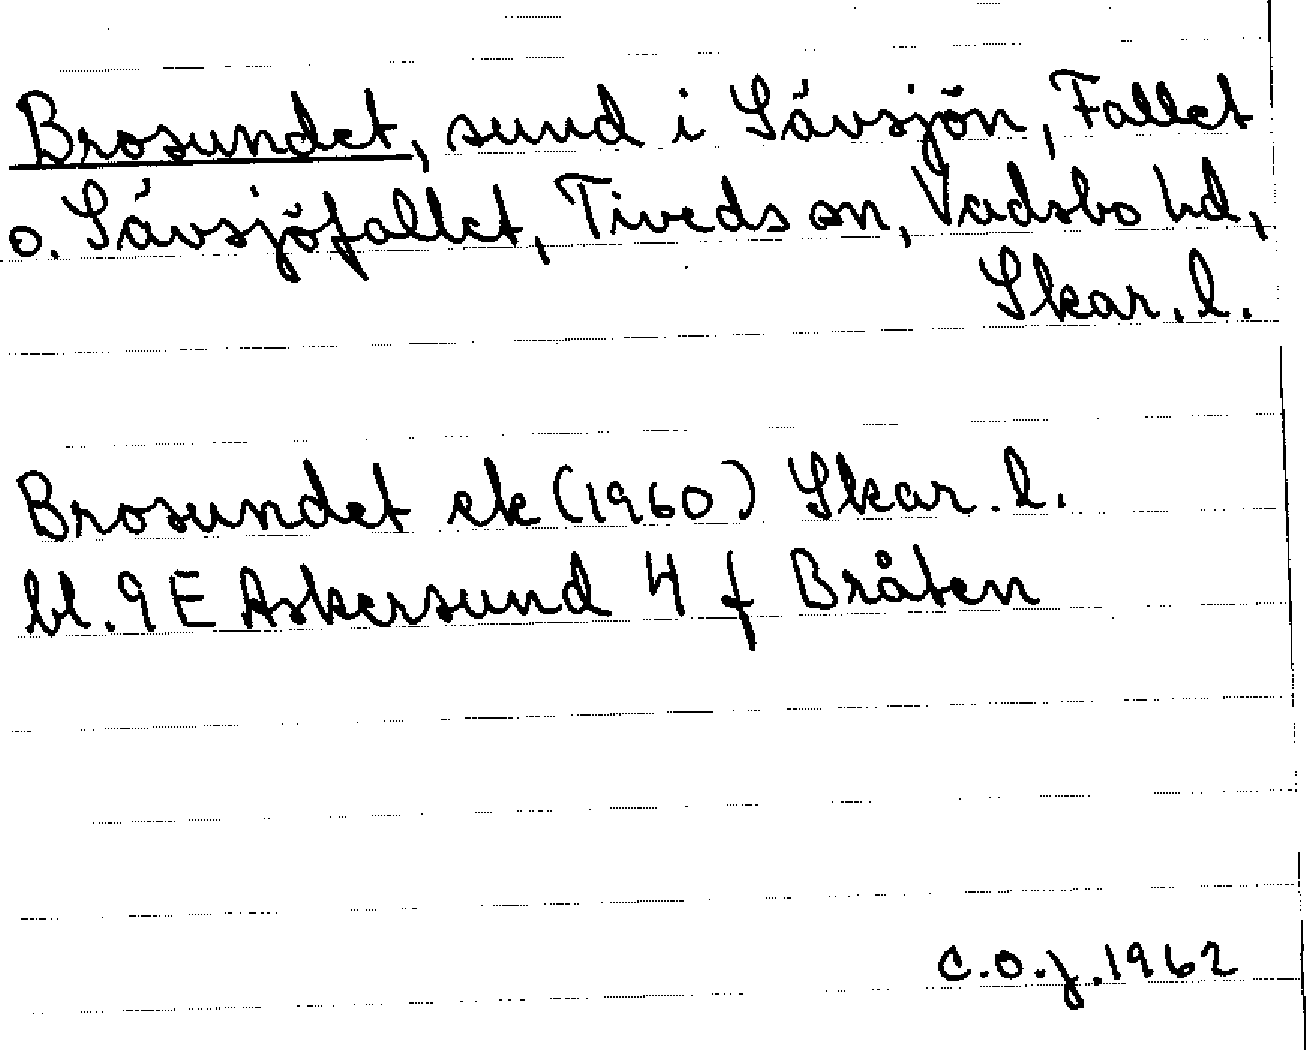 Brosundet, sund i Sävsjön, Fallet
o. Sävsjöfallet, Tiveds sn, Vadsbo hd,
Skar. l.
Brosundet ek (1960) Skar. l.
bl. 9 E Askersund 4 f Bråten
C.O.J. 1962